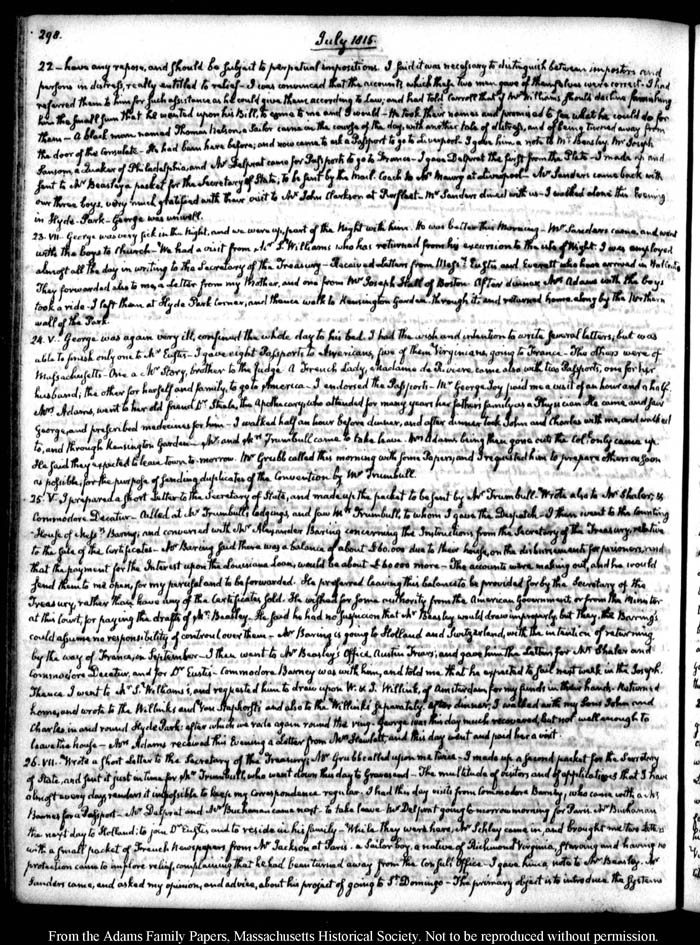 298.
July 1815.
22 – have any repose, and should be subject to perpetual impositions. I said it was necessary to distinguish between impostors and
persons in distress, really entitled to relief – I was convinced that the accounts which these two men gave of themselves were correct – I had
referred them to him for such assistance as he could give them according to Law; and had told Carroll that if Mr Williams should decline furnishing
him the small sum that he wanted upon his Bill, to come to me and I would – He took their names and promised to see what he could do for
them – A black man named Thomas Nelson, a Sailor came in the course of the day, with another tale of distress, and of being turned away from
the door of the Consulate. He had been here before; and now came to ask a Passport to go to Liverpool. I gave him a note to Mr Beasley. Mr Joseph
Sansom, a Quaker of Philadelphia, and Mr Delprat came for Passports to go to France – I gave Delprat the first from the Plate – I made up and
sent to Mr Beasley a packet for the Secretary of State, to be sent by the Mail Coach to Mr Maury at Liverpool – Mr Sanders came back with
our three boys, very much gratified with their visit to Mr John Clarkson at Purfleet – Mr Sanders dined with us – I walked alone this Evening
in Hyde Park – George was unwell.
23. VII. George was very sick in the Night, and we were up, part of the Night with him. He was better this Morning – Mr Sanders came, and went
with the boys to Church – We had a visit from Mr S. Williams who has returned from his excursion to the isle of Wight. I was employed
almost all the day in writing to the Secretary of the Treasury – Received Letters from Messrs Eustis and Everett who have arrived in Holland;
They forwarded also to me, a Letter from my Brother, and one from Mr Joseph Hall of Boston. After dinner, Mrs Adams with the boys
took a ride – I left them at Hyde Park Corner, and thence walk to Kensington Garden through it; and returned home along by the Northern
wall of the Park.
24. V. George was again very ill, confined the whole day to his bed. I had the wish and intention to write several letters; but was
able to finish only one to Mr Eustis – I gave eight Passports to Americans, five of them Virginians, going to France – The others were of
Massachusetts – One a Mr Story, brother to the judge. A French Lady, Madame de Riviere came also with two Passports, one for her
husband; the other for herself and family, to go to America – I endorsed the Passports – Mr George Joy paid me a visit of an hour and a half.
Mrs Adams, went to her old friend Dr Steele, the Apothecary, who attended for many years her father's family as a Physician. He came, and saw
George, and prescribed medicines for him – I walked half an hour before dinner, and after dinner took John and Charles with me, and walked
to, and through Kensington Garden – Mr and Mrs Trumbull came to take leave. Mrs Adams being then gone out the Col. only came up.
He said they expected to leave town to-morrow. Mr Grubb called this morning with some Papers, and I requested him to prepare others as soon
as possible, for the purpose of sending duplicates of the Convention by Mr Trumbull.
25. V. I prepared a short Letter to the Secretary of State, and made up the packet to be sent by Mr Trumbull. Wrote also to Mr Shaler, &
Commodore Decatur – Called at Mr Trumbull's lodgings, and saw Mrs Trumbull, to whom I gave the Despatch – I then went to the Counting
-House of Messrs Baring; and conversed with Mr Alexander Baring concerning the Instructions from the Secretary of the Treasury, relative
to the sale of the Certificates – Mr Baring said there was a balance of about £60.000 due to their house, on the disbursements for prisoners, and
that the payment for the Interest upon the Louisiana Loan, would be about £60.000 more – The accounts were making out, and he would
send them to me open, for my perusal and to be forwarded. He preferred leaving this balance to be provided for by the Secretary of the
Treasury, rather than have any of the Certificates sold. He wished for some authority from the American Government or from the Minister
at this Court, for paying the drafts of Mr Beasley. He said he had no suspicion that Mr Beasley would draw improperly, but they, the Barings
could assume no responsibility of controul over them – Mr Baring is going to Holland and Switzerland, with the intention of returning
by the way of France, in September – I then went to Mr Beasley's Office, Austin Friars; and gave him the Letters for Mr Shaler and
Commodore Decatur, and for Dr Eustis – Commodore Barney was with him, and told me that he expected to sail next week in the Joseph.
Thence I went to Mr S. Williams's, and requested him to draw upon W. & J. Willink, of Amsterdam for my funds in their hands. Returned
home, and wrote to the Willinks and Van Staphorsts and also to the Willinks separately. After dinner, I walked with my Sons John and
Charles in and round Hyde Park: after which we rode again round the ring. George was this day much recovered, but not well enough to
leave the house – Mrs Adams received this Evening a Letter from Mrs Hewlett, and this day went and paid her a visit.
26. VII. Wrote a short Letter to the Secretary of the Treasury; Mr Grubb called upon me twice – I made up a second packet for the Secretary
of State, and sent it just in time for Mr Trumbull, who went down this day to Gravesend – The multitude of visitors and of applications that I have
almost every day, renders it impossible to keep my Correspondence regular. I had this day visits from Commodore Barney, who came with a Mr
Barnes for a Passport – Mr Delprat and Mr Buchanan came next to take leave. Mr Delprat going to morrow morning for Paris. Mr Buchanan
the next day to Holland; to join Dr Eustis, and to reside in his family – While they were here, Mr Schley came in, and brought me two letters
with a small packet of French Newspapers from Mr Jackson at Paris. a Sailor boy, a native of Richmond Virginia, starving and having no
protection came to implore relief, complaining that he had been turned away from the Consul's Office. I gave him a note to Mr Beasley. Mr
Sanders came, and asked my opinion, and advice, about his project of going to St Domingo – The primary object is to introduce the System
From the Adams Family Papers, Massachusetts Historical Society. Not to be reproduced without permission.